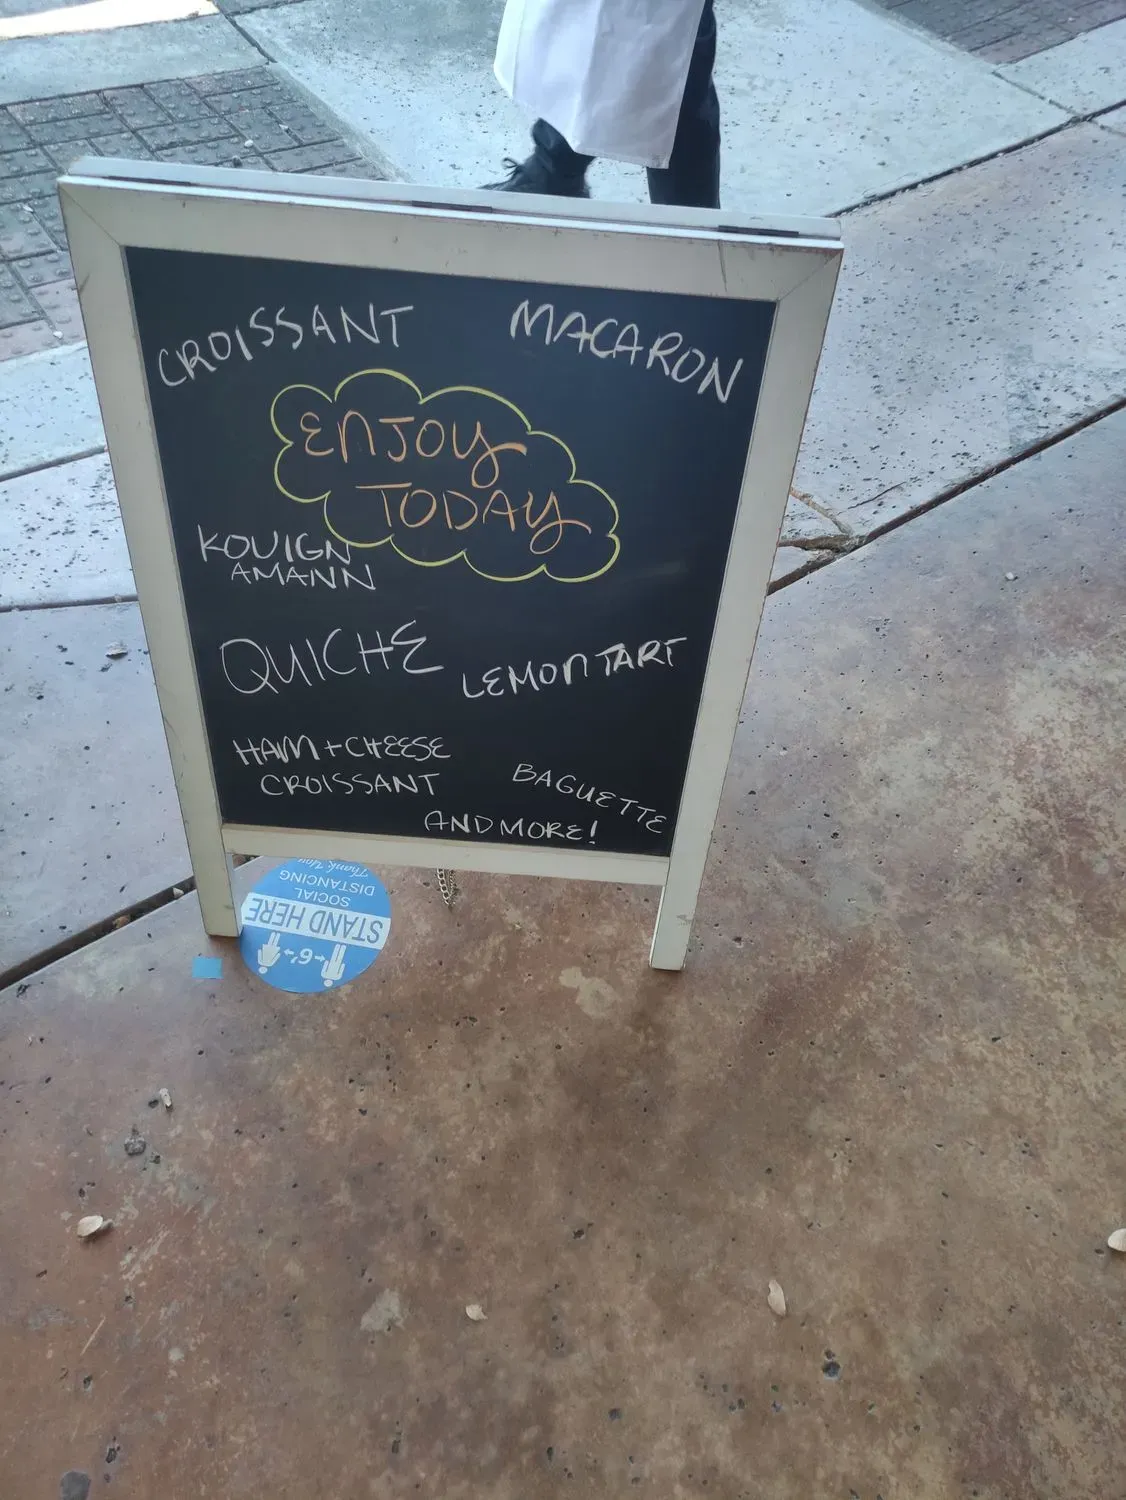 CROISSANT
MACARON
ENJOY
TODAY
KOUIGN
AMANN
QUICHE
LEMON TART
HAM + CHEESE
CROISSANT
BAGUETTE
AND MORE!
Thank You
SOCIAL
DISTANCING
STAND HERE
6'